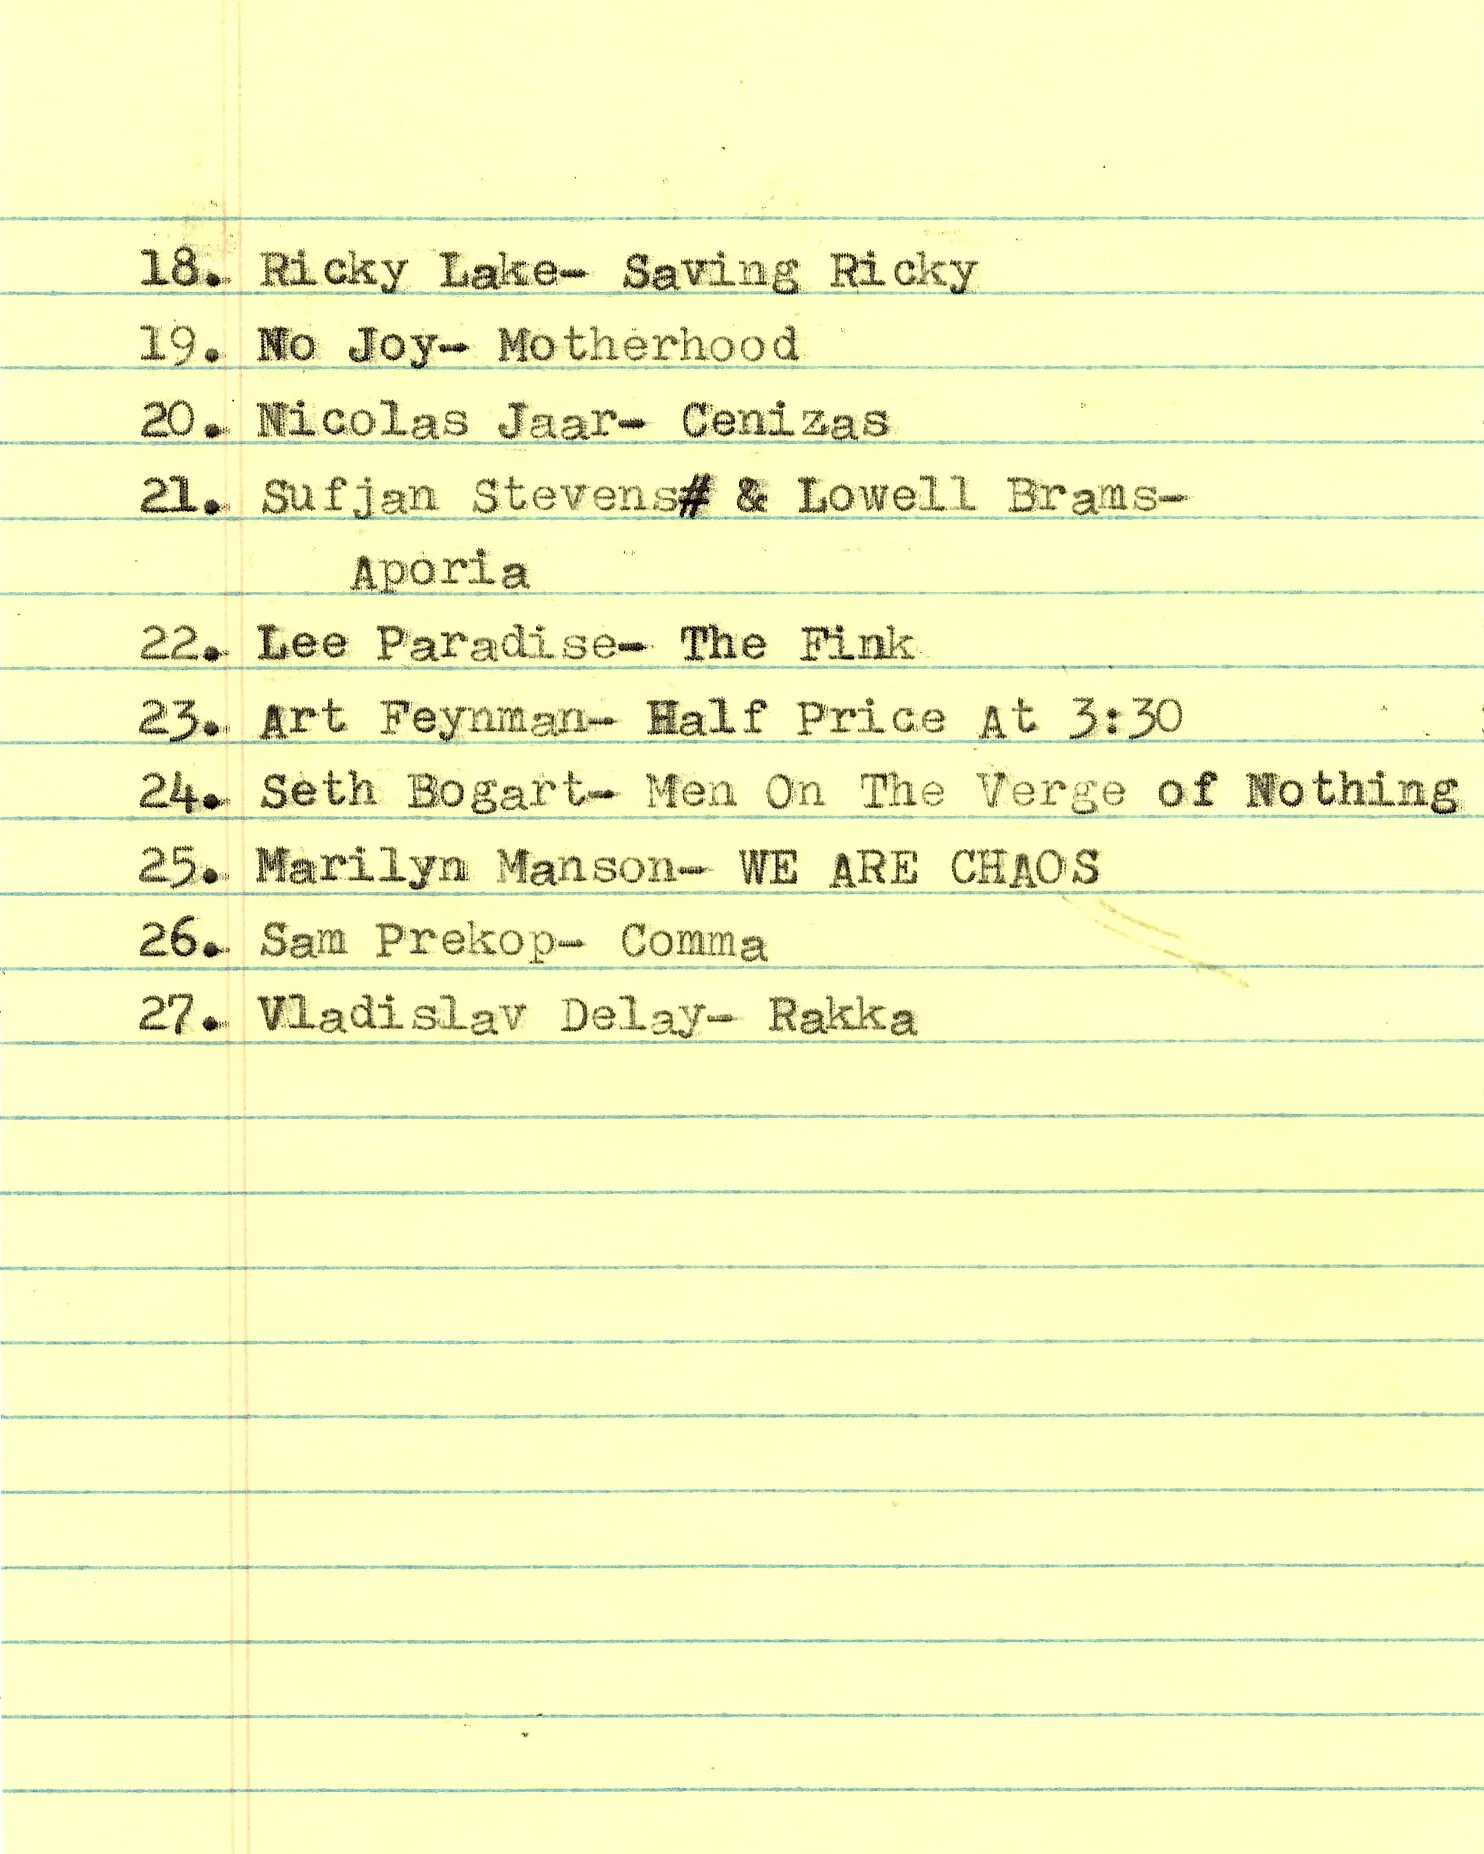 18. Ricky Lake- Saving Ricky
19. No Joy- Motherhood
20. Nicolas Jaar- Cenizas
21. Sufjan Stevens# & Lowell Brams-
Aporia
22. Lee Paradise- The Fink
23. Art Feynman- Half Price At 3:30
24. Seth Bogart- Men On The Verge of Nothing
25. Marilyn Manson- WE ARE CHAOS
26. Sam Prekop- Comma
27. Vladislav Delay- Rakka